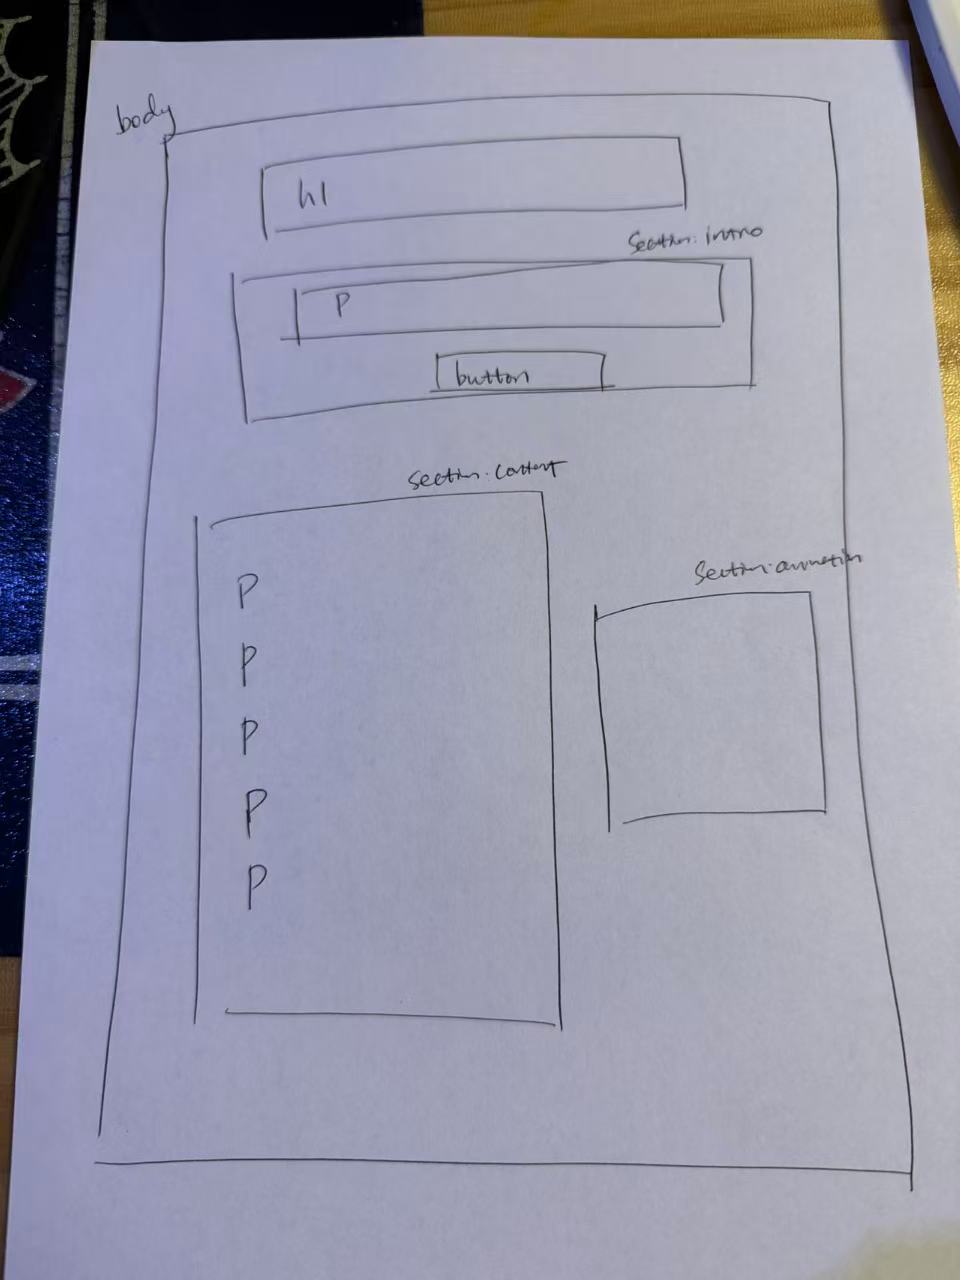 body
h1
section: intro
P
button
section: content
section: animation
P
P
P
P
P